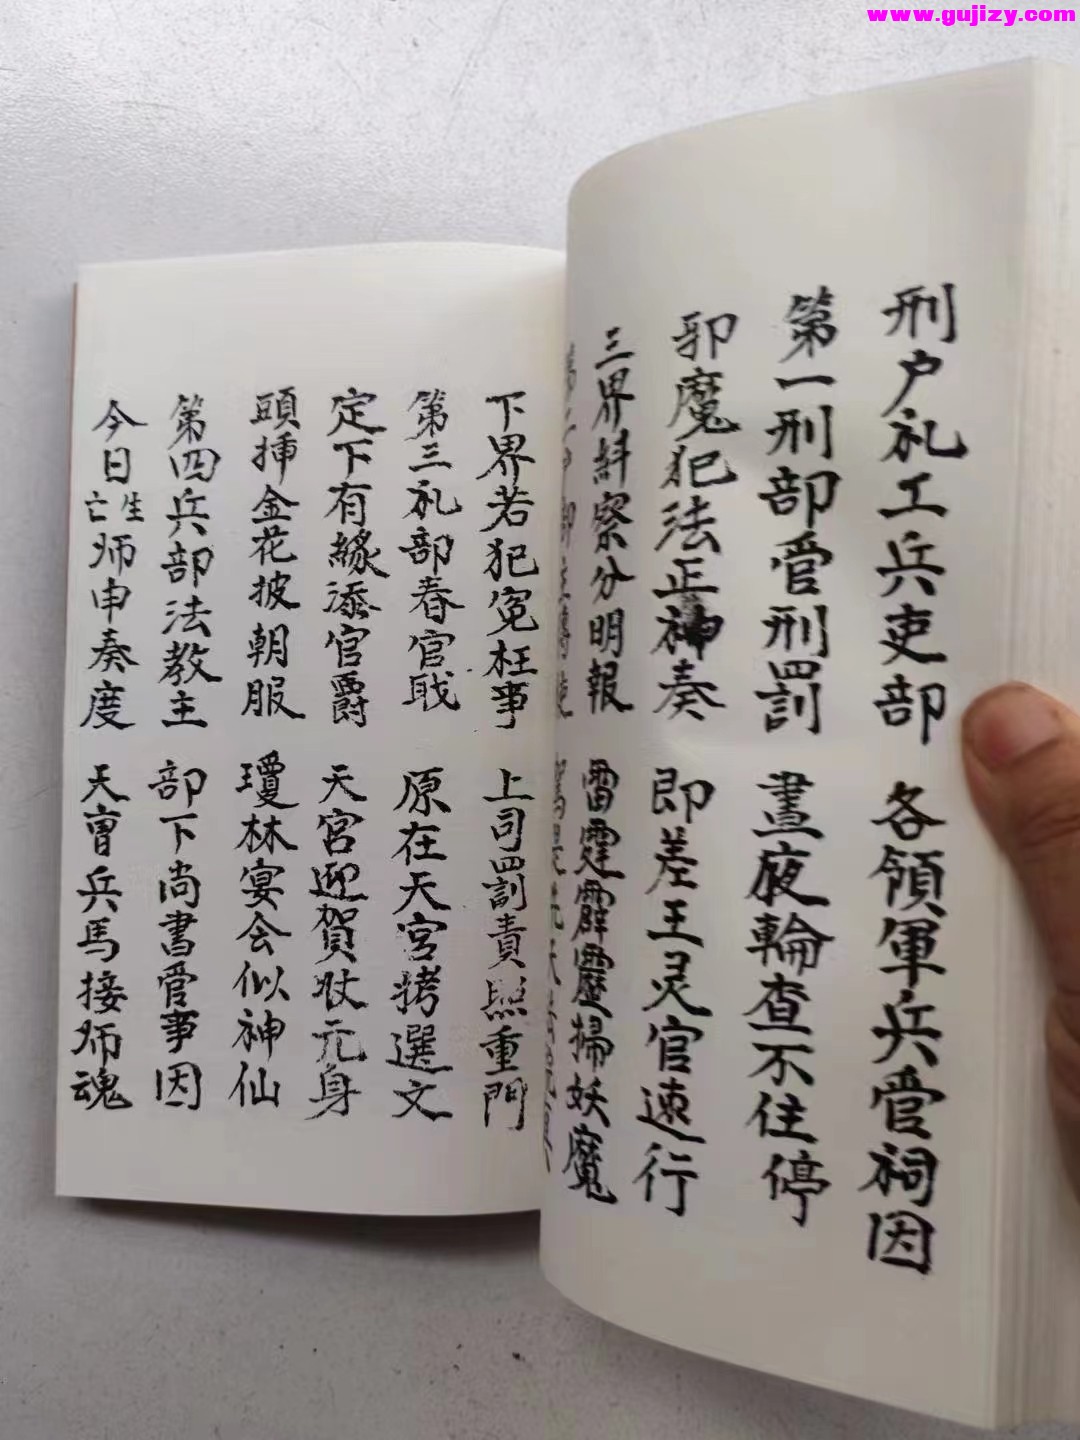 www.gujizy.com
刑户礼工兵吏部 各領軍兵管祠因
第一刑部管刑罰 晝夜輪查不住停
邪魔犯法正神奏 即差王灵官速行
三界斜察分明報 雷霆霹靂掃妖魔
下界若犯冤枉事 上司罰責照重門
第三礼部春官戝 原在天宮拷選文
定下有緣添官爵 天宮迎賀狀元身
頭挿金花披朝服 瓊林宴会似神仙
第四兵部法教主 部下尚書管事因
今日亡生师申奏度 天曹兵馬接师魂